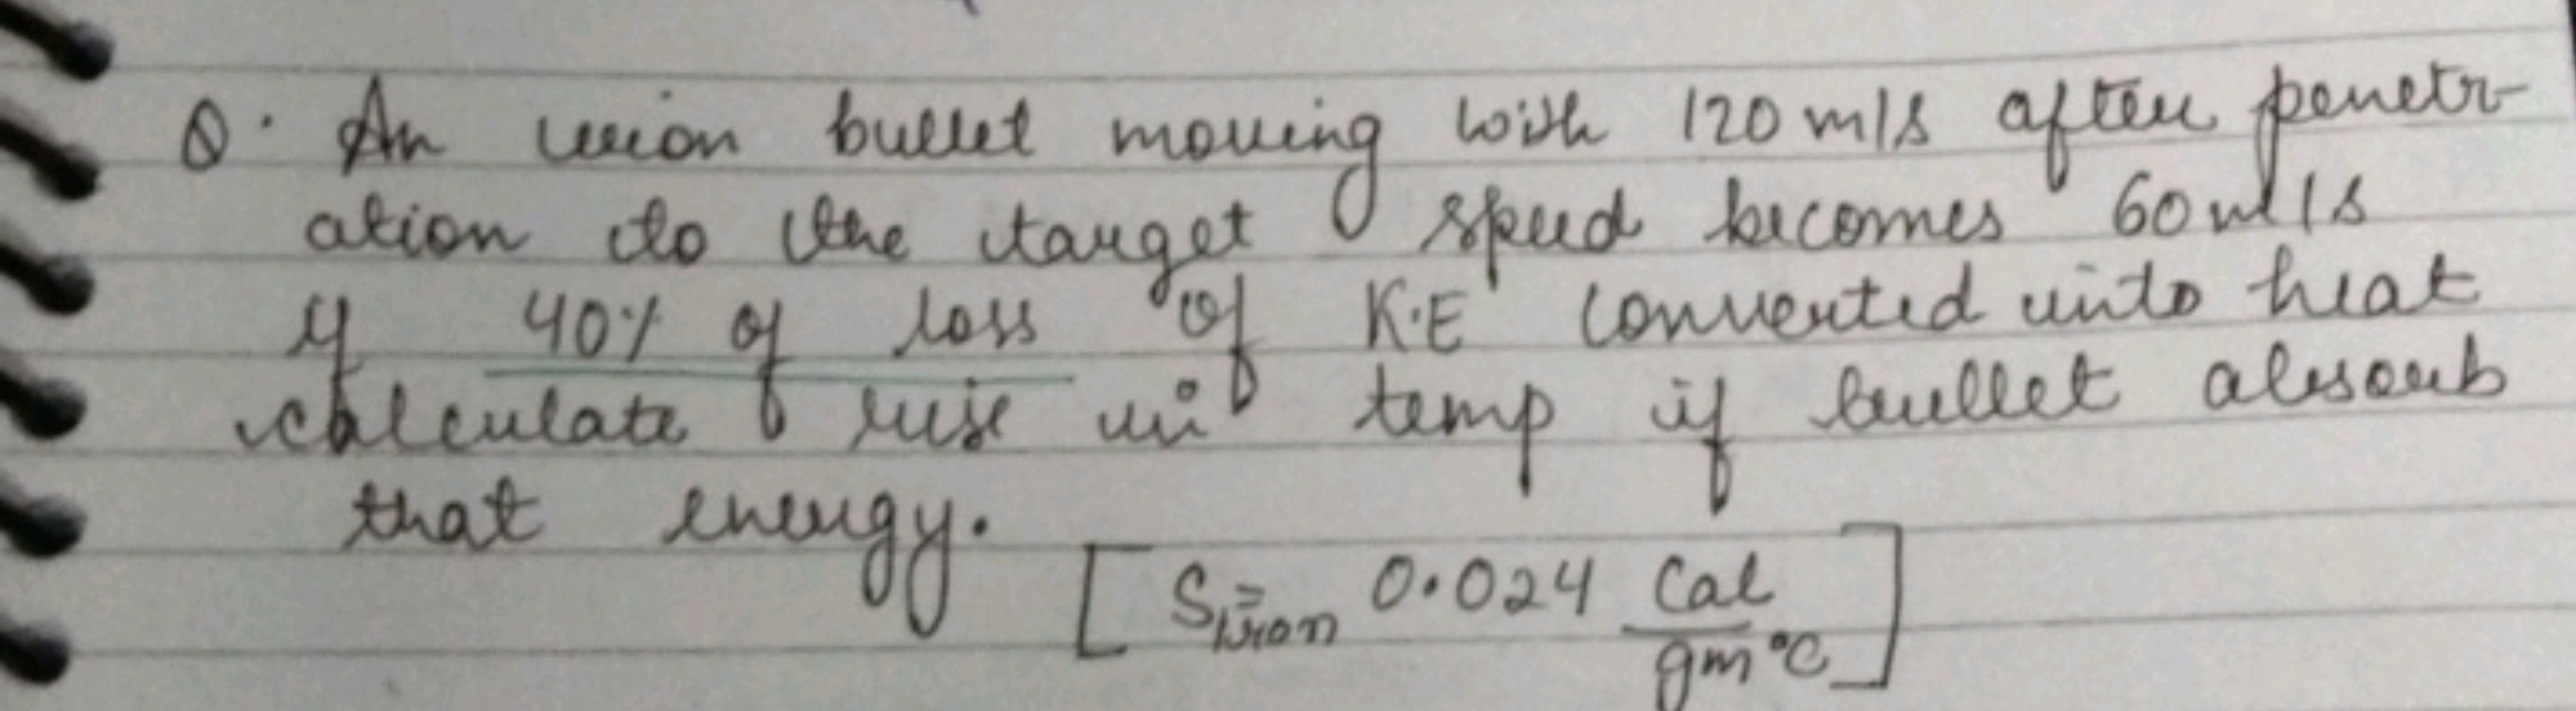 Q. An iron bullet moving with 120 m/s after penetr-
ation to the target speed becomes 60 m/s
if 40% of loss of K.E converted into heat
calculate rise in temp if bullet absorb
that energy.
[S iron = 0.024 Cal/gm°C]